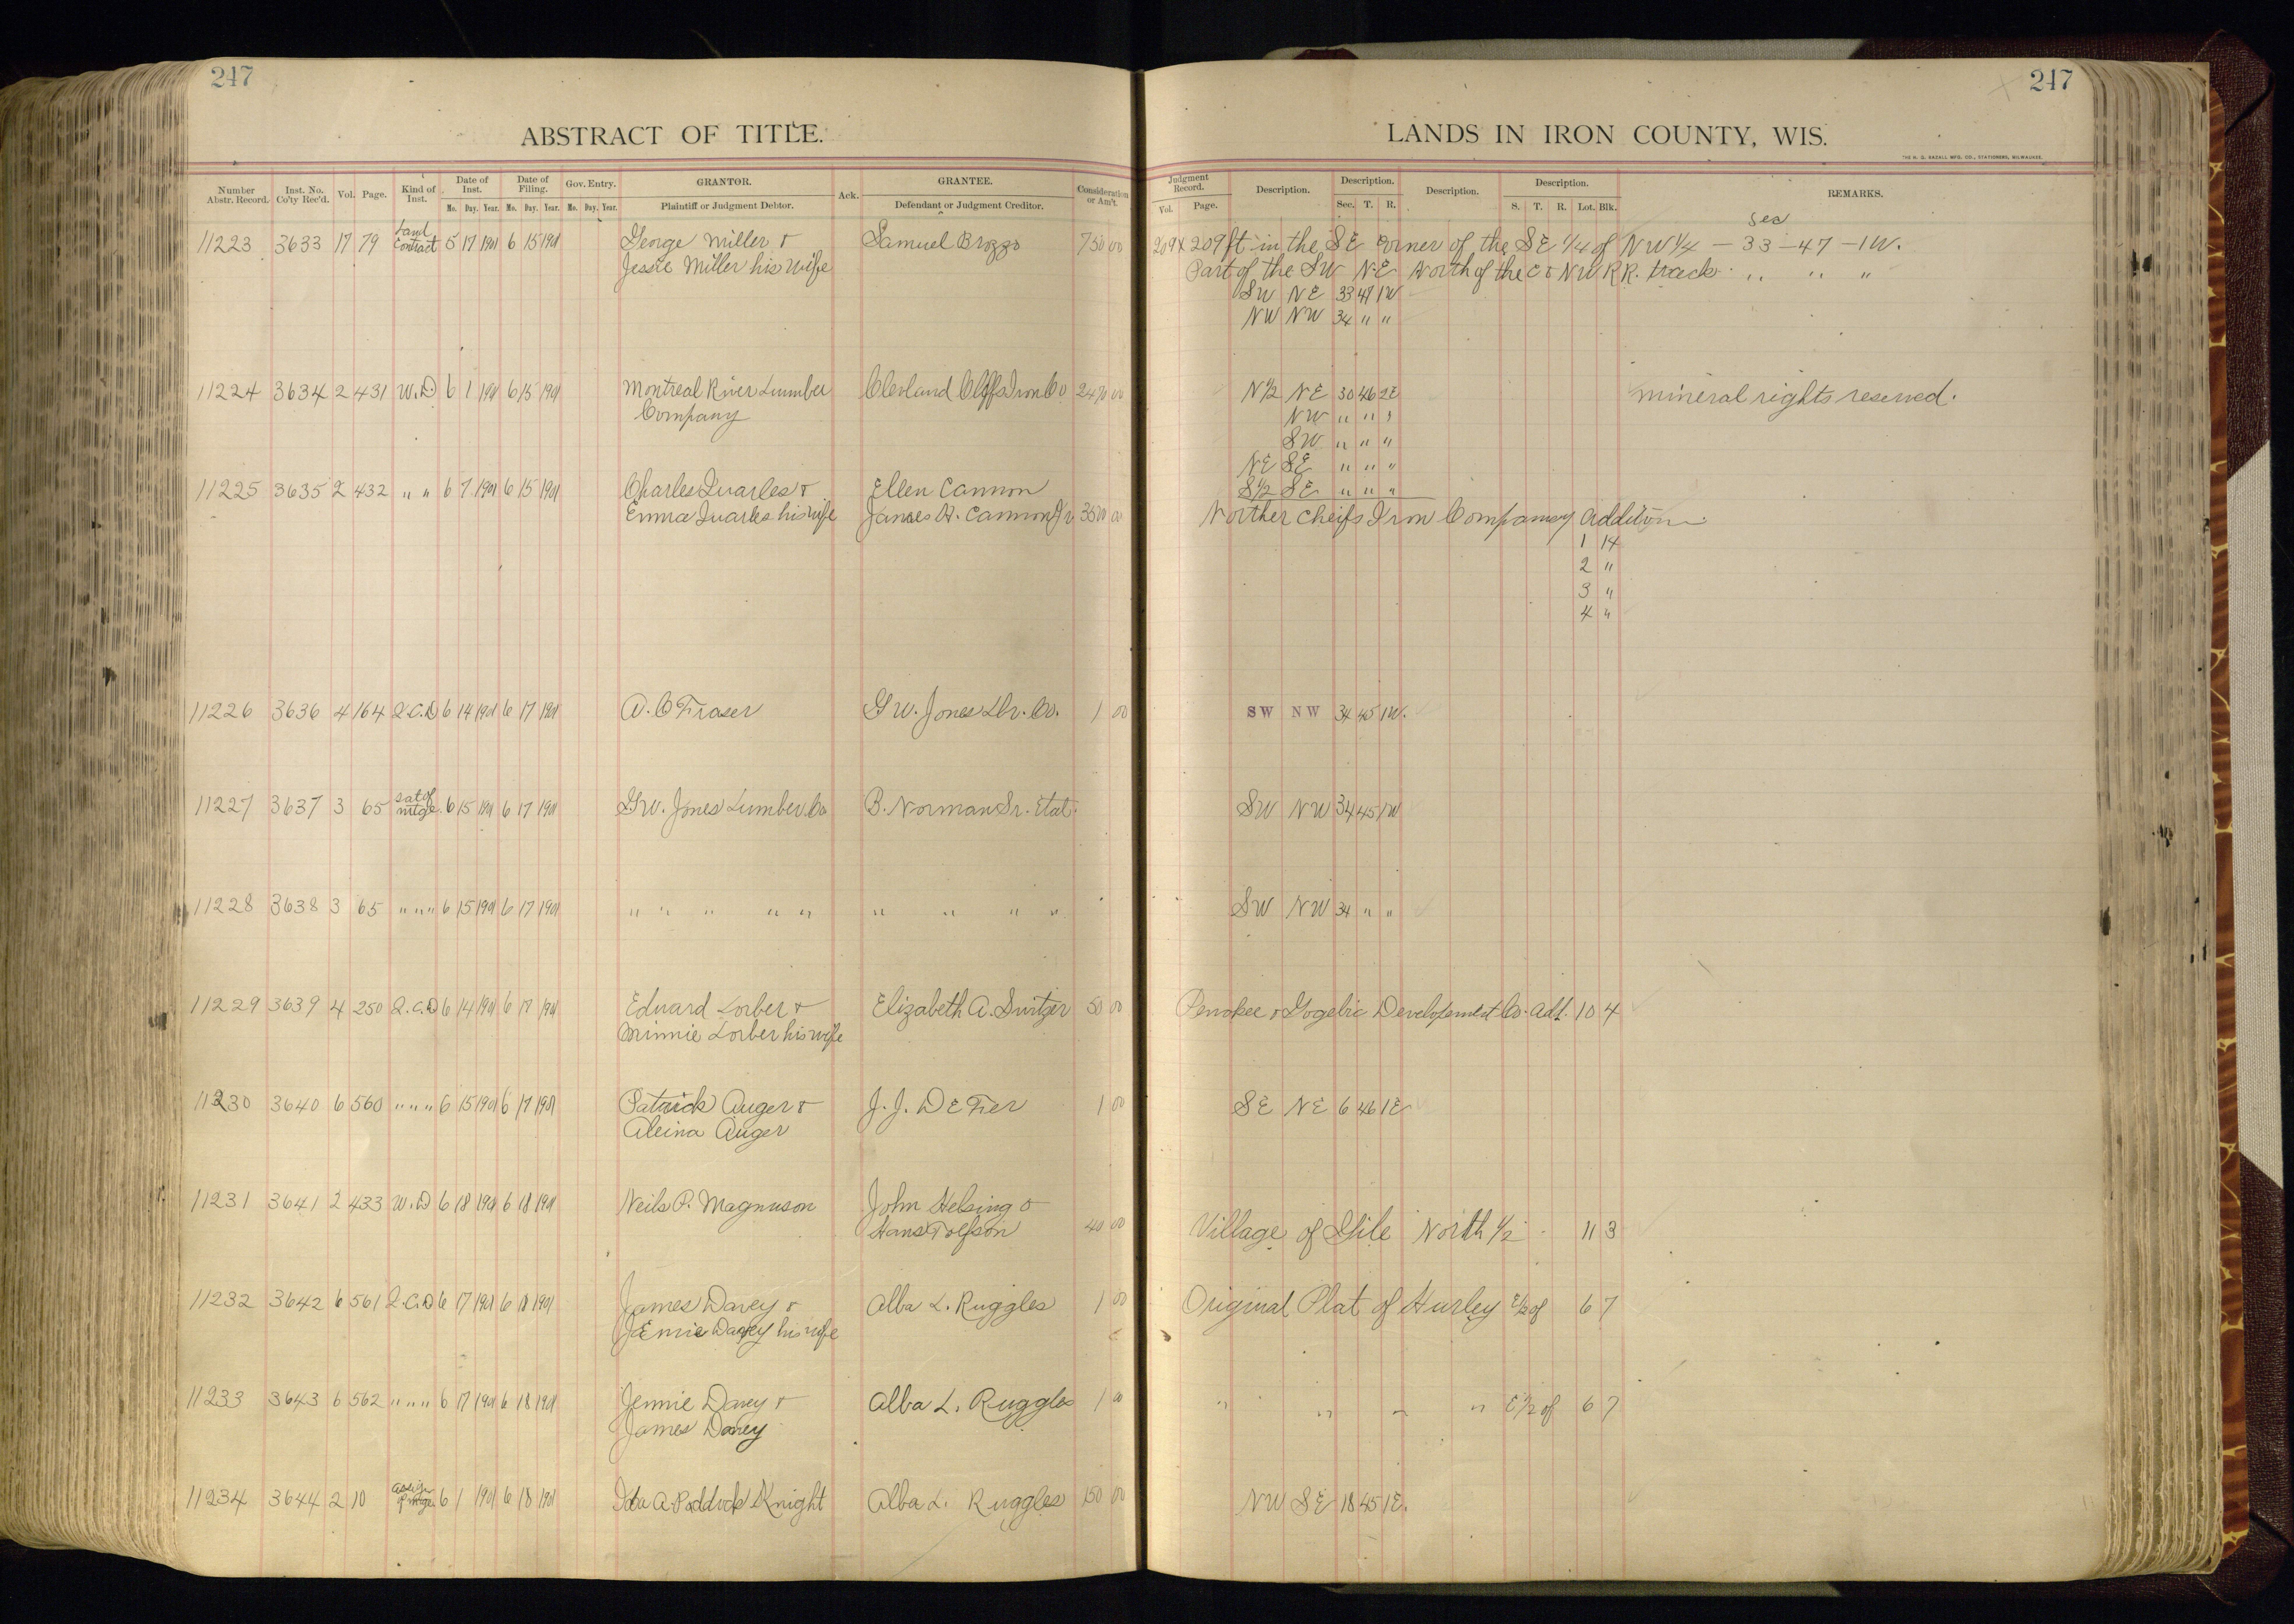 247
247
ABSTRACT OF TITLE.
LANDS IN IRON COUNTY, WIS.
THE H. G. RAZALL MFG. CO., STATIONERS, MILWAUKEE.
Number Abstr. Record. Inst. No. Co'ty Rec'd. Vol. Page. Kind of Inst. Date of Inst. Mo. Day. Year. Date of Filing. Mo. Day. Year. Gov. Entry. Mo. Day. Year. GRANTOR. Plaintiff or Judgment Debtor. Ack. GRANTEE. Defendant or Judgment Creditor. Consideration or Am't.
Judgment Record. Vol. Page. Description. Description. Sec. T. R. Description. Description. S. T. R. Lot. Blk. REMARKS.
Sec
11223 3633 17 79 Land Contract 5 17 1901 6 15 1901 George Miller & Samuel Brozzo 750 00 209 X 209 ft in the SE corner of the SE 1/4 of NW 1/4 - 33 - 47 - 1W.
Jessie Miller his wife Part of the SW NE North of the C & NW RR. track " " "
SW NE 33 47 1W
NW NW 34 " "
11224 3634 2 431 W.D 6 1 1901 6 15 1901 Montreal River Lumber Clevland Cliffs Iron Co 2470 00 N 1/2 NE 30 46 2E mineral rights reserved.
Company NW " " "
SW " " "
NE SE " " "
11225 3635 2 432 " " 6 7 1901 6 15 1901 Charles Quarles & Ellen Cannon S 1/2 SE " " "
Emma Quarles his wife James A. Cannon Jr 3500 00 Norther Cheifs Iron Company Addition
1 14
2 "
3 "
4 "
11226 3636 4 164 Q.C.D 6 14 1901 6 17 1901 A. C Fraser G W. Jones Lbr. Co. 1 00 SW NW 34 45 1W.
11227 3637 3 65 Sat of mtge. 6 15 1901 6 17 1901 G W. Jones Lumber Co B. Norman Sr. Etal. SW NW 34 45 1W
11228 3638 3 65 " " " 6 15 1901 6 17 1901 " " " " " " " " " SW NW 34 " "
11229 3639 4 250 Q.C.D 6 14 1901 6 17 1901 Eduard Lorber & Elizabeth A. Switzer 50 00 Penokee & Gogebic Developement Co. Add. 10 4
Minnie Lorber his wife
11230 3640 6 560 " " " 6 15 1901 6 17 1901 Patrick Auger & J. J. DE Fer 1 00 SE NE 6 46 1E
Aleina Auger
11231 3641 2 433 W.D 6 18 1901 6 18 1901 Neils P. Magnuson John Helsing &
Hans Tolfson 40 00 Village of Gile North 1/2 11 3
11232 3642 6 561 Q.C.D 6 17 1901 6 18 1901 James Davey & Alba L. Ruggles 1 00 Original Plat of Hurley E 1/2 of 6 7
Jennie Davey his wife
11233 3643 6 562 " " " 6 17 1901 6 18 1901 Jennie Davey & Alba L. Ruggles 1 00 " " " " E 1/2 of 6 7
James Davey
11234 3644 2 10 assign of mtge 6 1 1901 6 18 1901 Ida A. Paddock Knight Alba L. Ruggles 150 00 NW SE 18 45 1E.